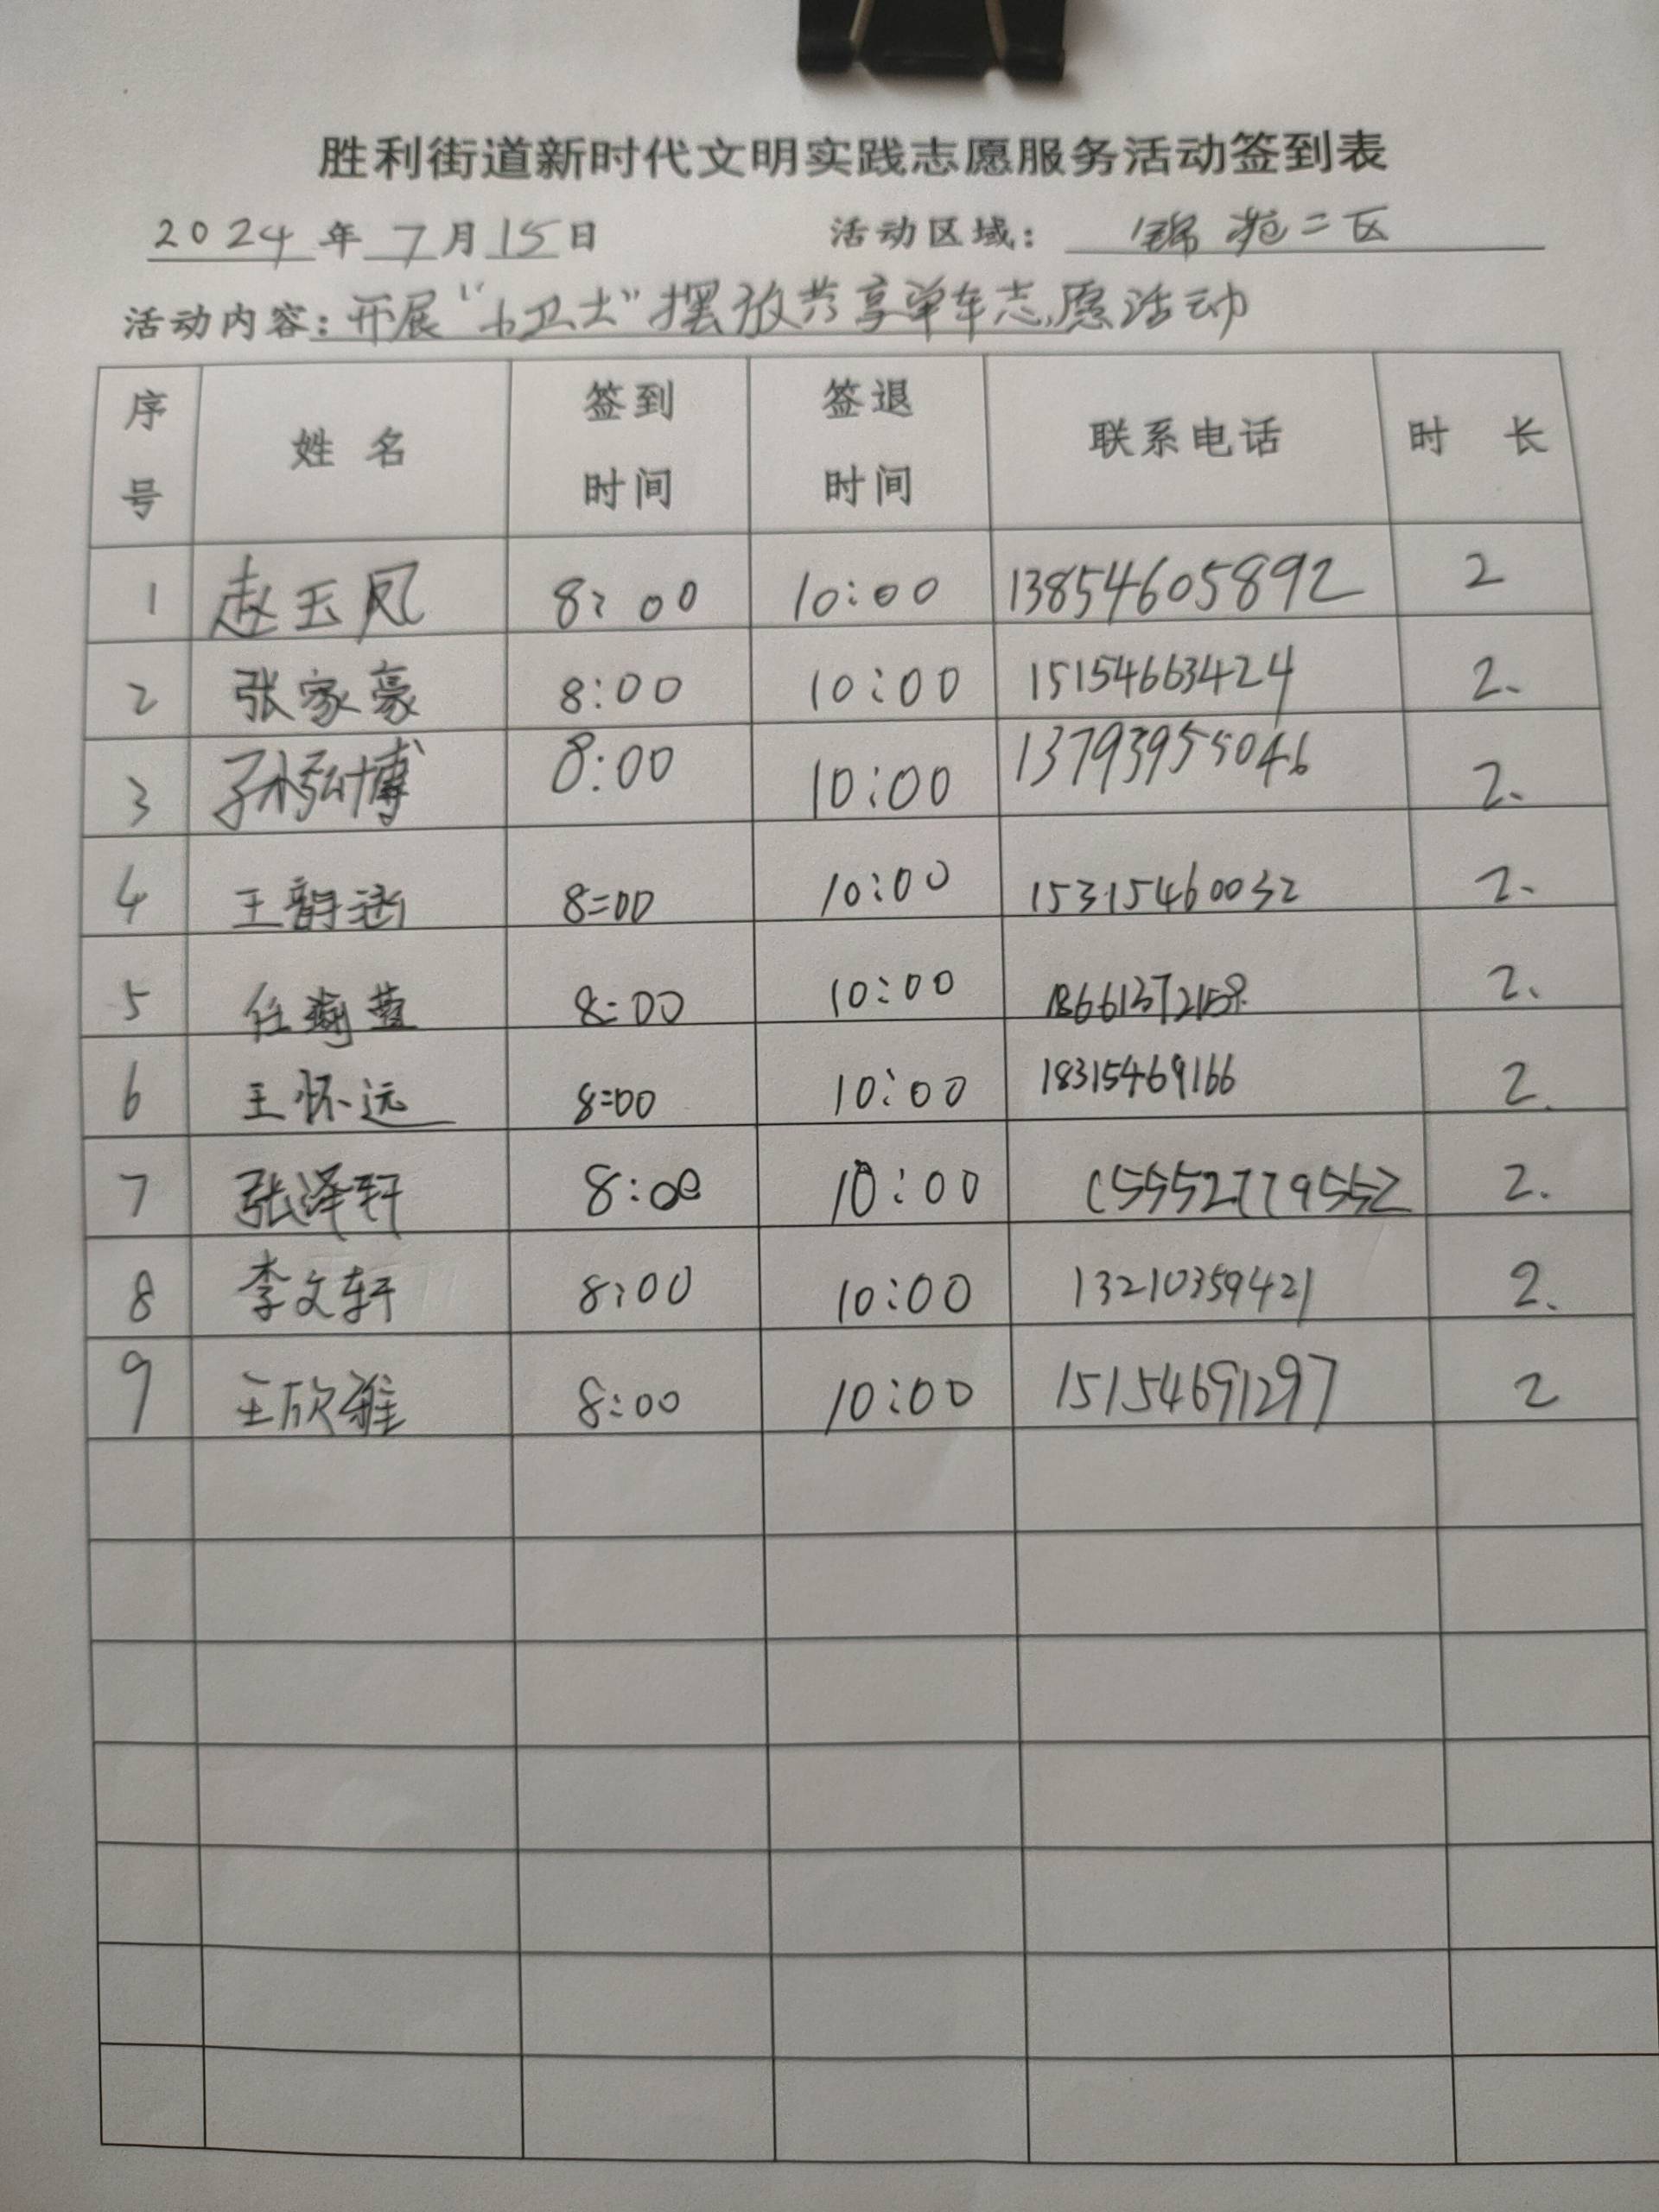 胜利街道新时代文明实践志愿服务活动签到表
2024年7月15日 活动区域：锦苑二区
活动内容：开展“小卫士”摆放共享单车志愿活动
序号 姓名 签到时间 签退时间 联系电话 时长
1 赵玉凤 8:00 10:00 13854605892 2
2 张家豪 8:00 10:00 15154663424 2.
3 孙弘博 8:00 10:00 13793955046 2.
4 王韵涵 8:00 10:00 15315460032 2.
5 任 8:00 10:00 2.
6 王怀远 8:00 10:00 18315469166 2.
7 张泽轩 8:00 10:00 2.
8 李文轩 8:00 10:00 13210359421 2.
9 王欣雅 8:00 10:00 15154691297 2